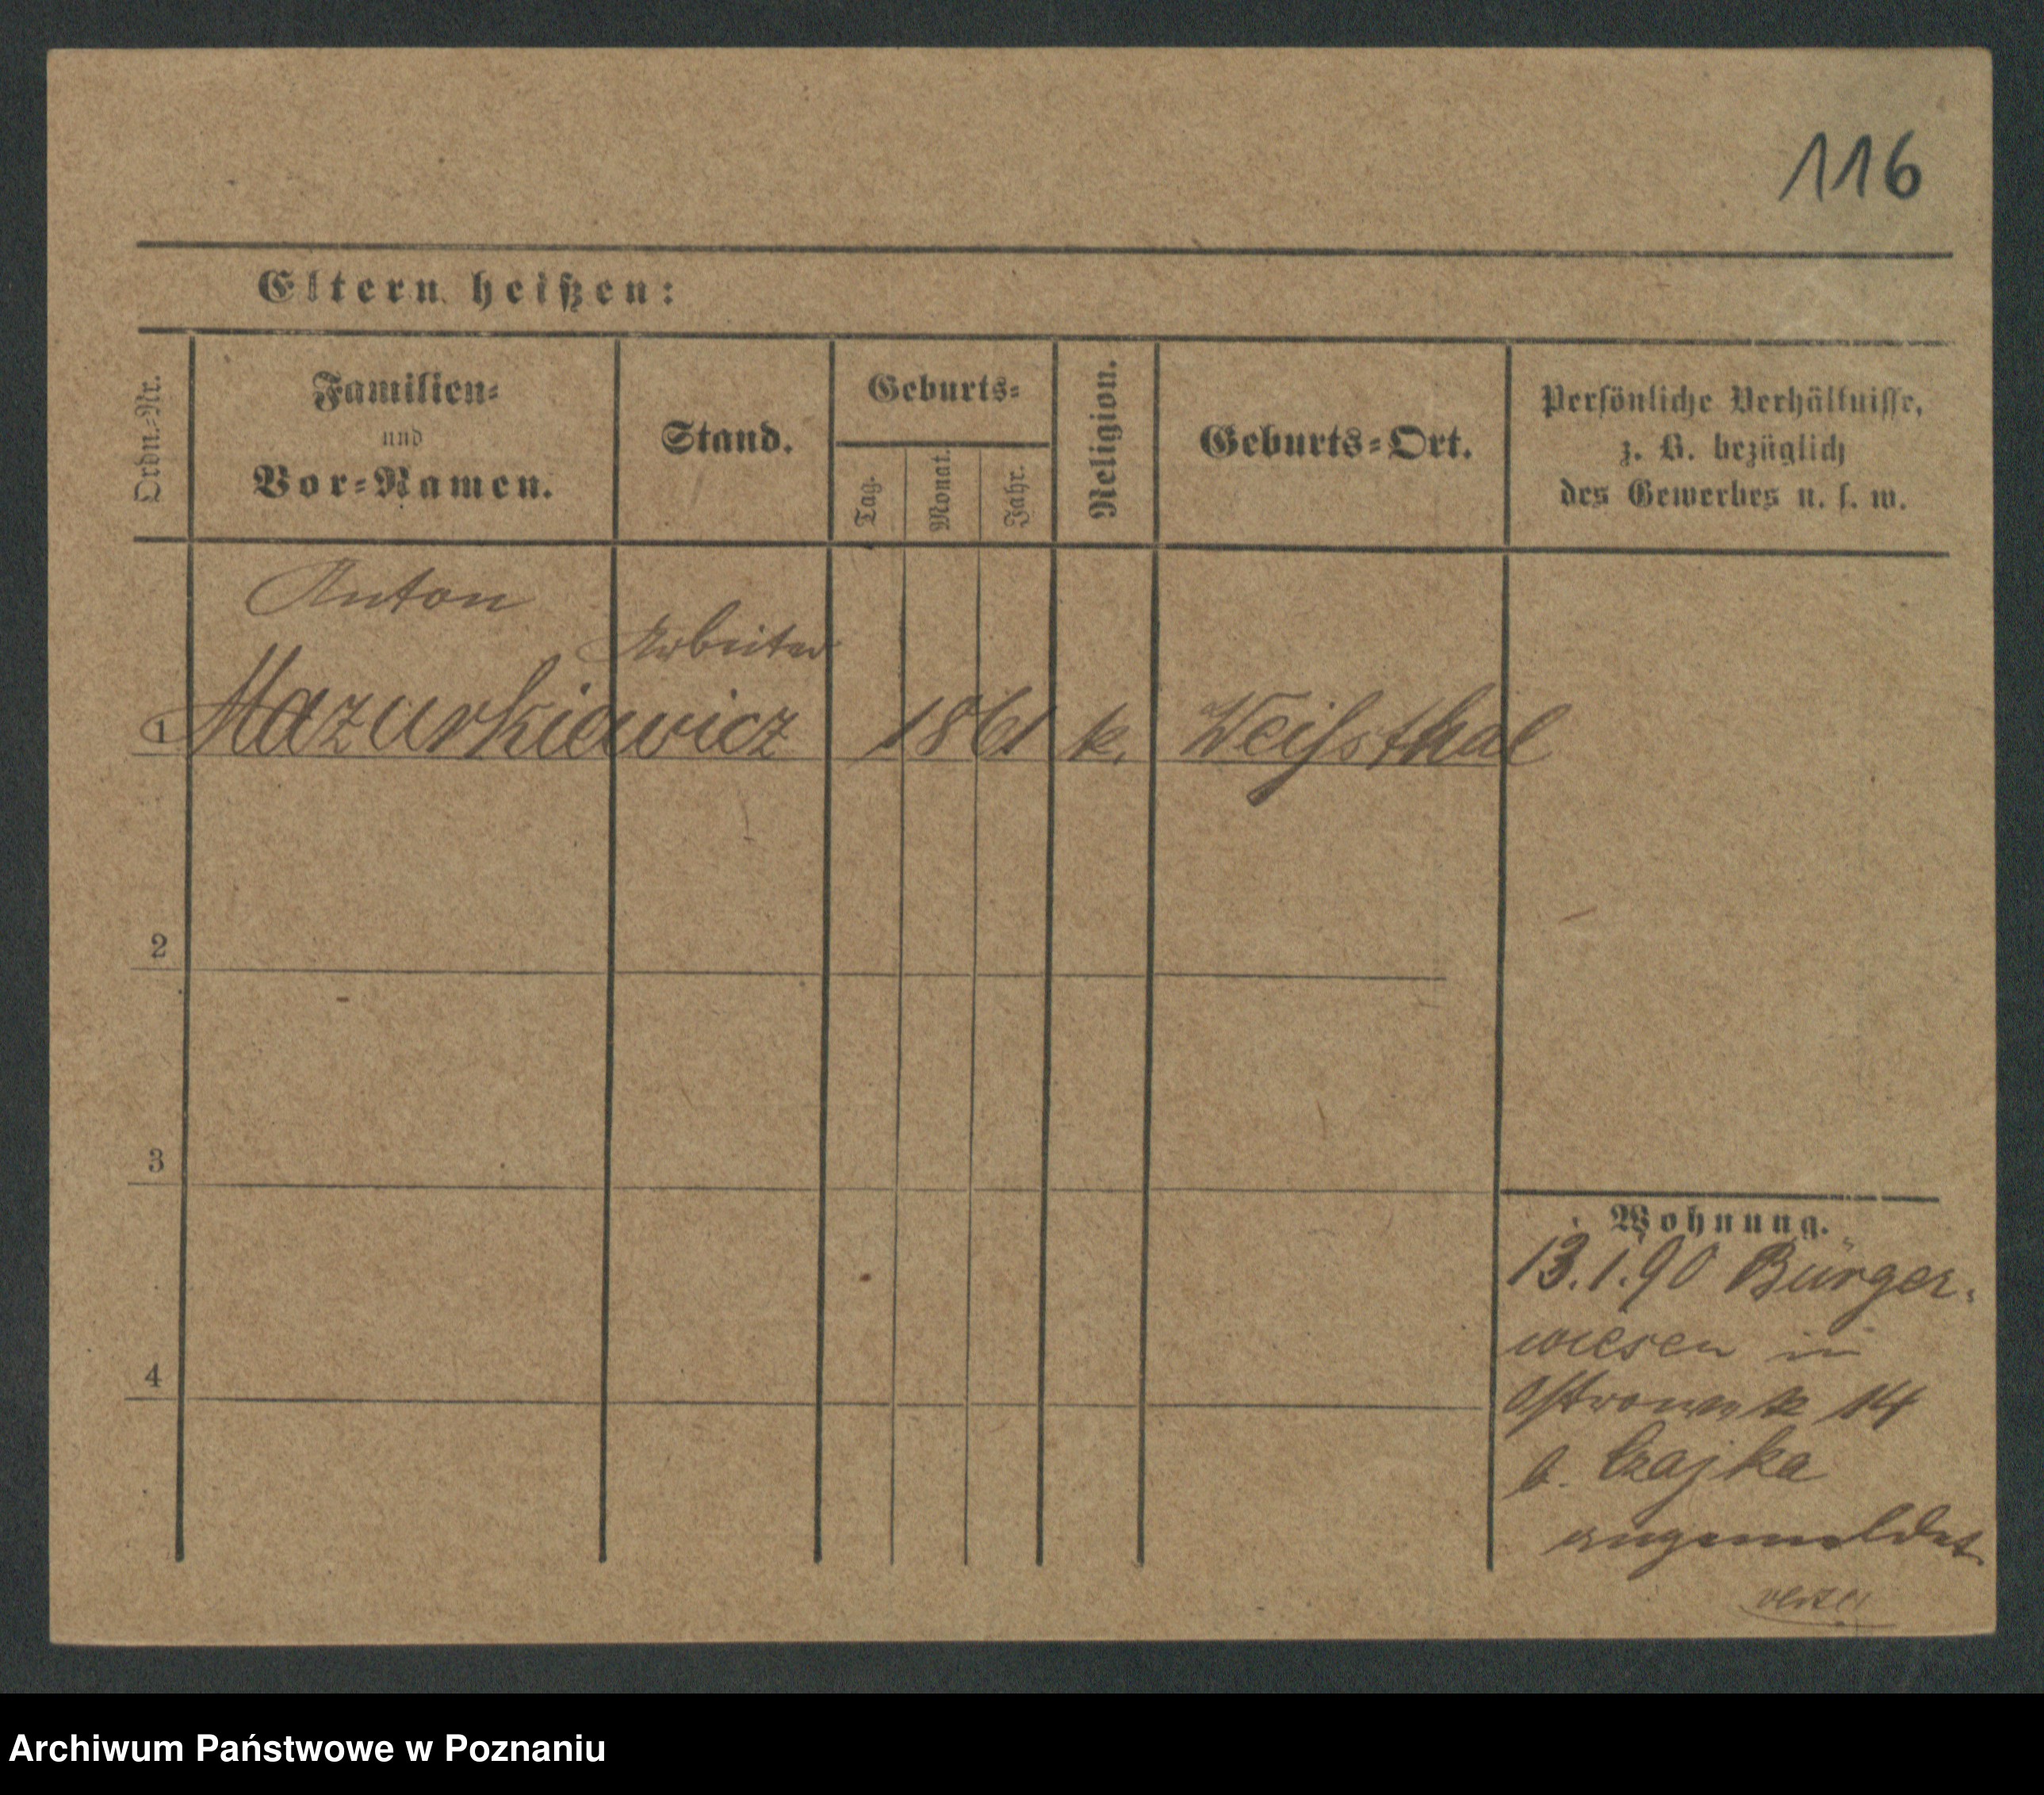 116
Eltern heißen:
Ordn.-Nr.
Familien-
und
Vor-Namen.
Stand.
Geburts-
Tag.
Monat.
Jahr.
Religion.
Geburts-Ort.
Persönliche Verhältnisse,
z. B. bezüglich
des Gewerbes u. s. w.
Anton
Arbeiter
1 Mazurkiewicz 1861 k. Weißsthal
2
3
4
Wohnung.
13.1.90 Bürger-
wiesen in
Ostrowek 14
b. Czajka
angemeldet
Archiwum Państwowe w Poznaniu